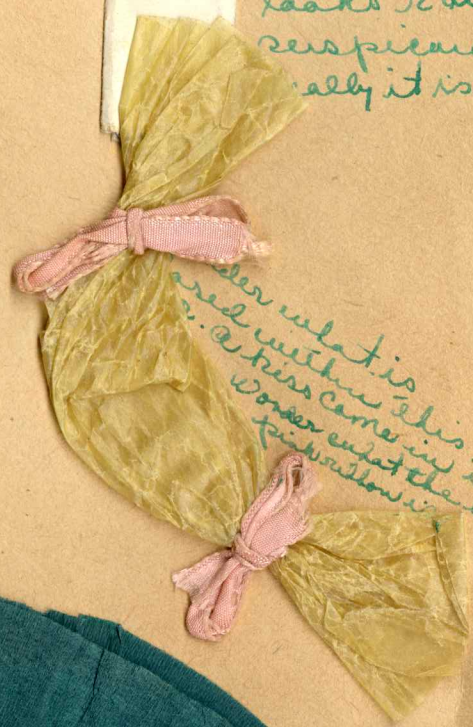 looks
suspicau
ally it is
der what is
ased within this
. A kiss came in
Wonder what the
pink willow is